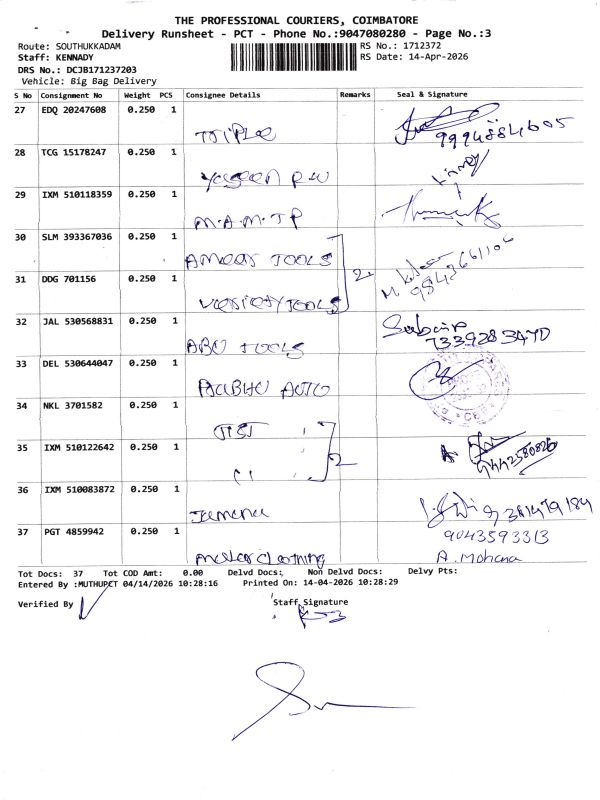 THE PROFESSIONAL COURIERS, COIMBATORE
Delivery Runsheet - PCT - Phone No.:9047080280 - Page No.:3
Route: SOUTHUKKADAM RS No.: 1712372
Staff: KENNADY RS Date: 14-Apr-2026
DRS No.: DCJB171237203
Vehicle: Big Bag Delivery
S No Consignment No Weight PCS Consignee Details Remarks Seal & Signature
27 EDQ 20247608 0.250 1
9994884605
28 TCG 15178247 0.250 1
29 IXM 510118359 0.250 1
M.A.M.TP
30 SLM 393367036 0.250 1
TOOLS
31 DDG 701156 0.250 1 2
9843661106
TOOLS
32 JAL 530568831 0.250 1
7339283470
ABU TOOLS
33 DEL 530644047 0.250 1
AUTO
34 NKL 3701582 0.250 1
35 IXM 510122642 0.250 1 2
9442580826
36 IXM 510083872 0.250 1
37 PGT 4859942 0.250 1 9043593313
clothing A. Mohana
Tot Docs: 37 Tot COD Amt: 0.00 Delvd Docs: Non Delvd Docs: Delvy Pts:
Entered By :MUTHUPCT 04/14/2026 10:28:16 Printed On: 14-04-2026 10:28:29
Verified By Staff Signature